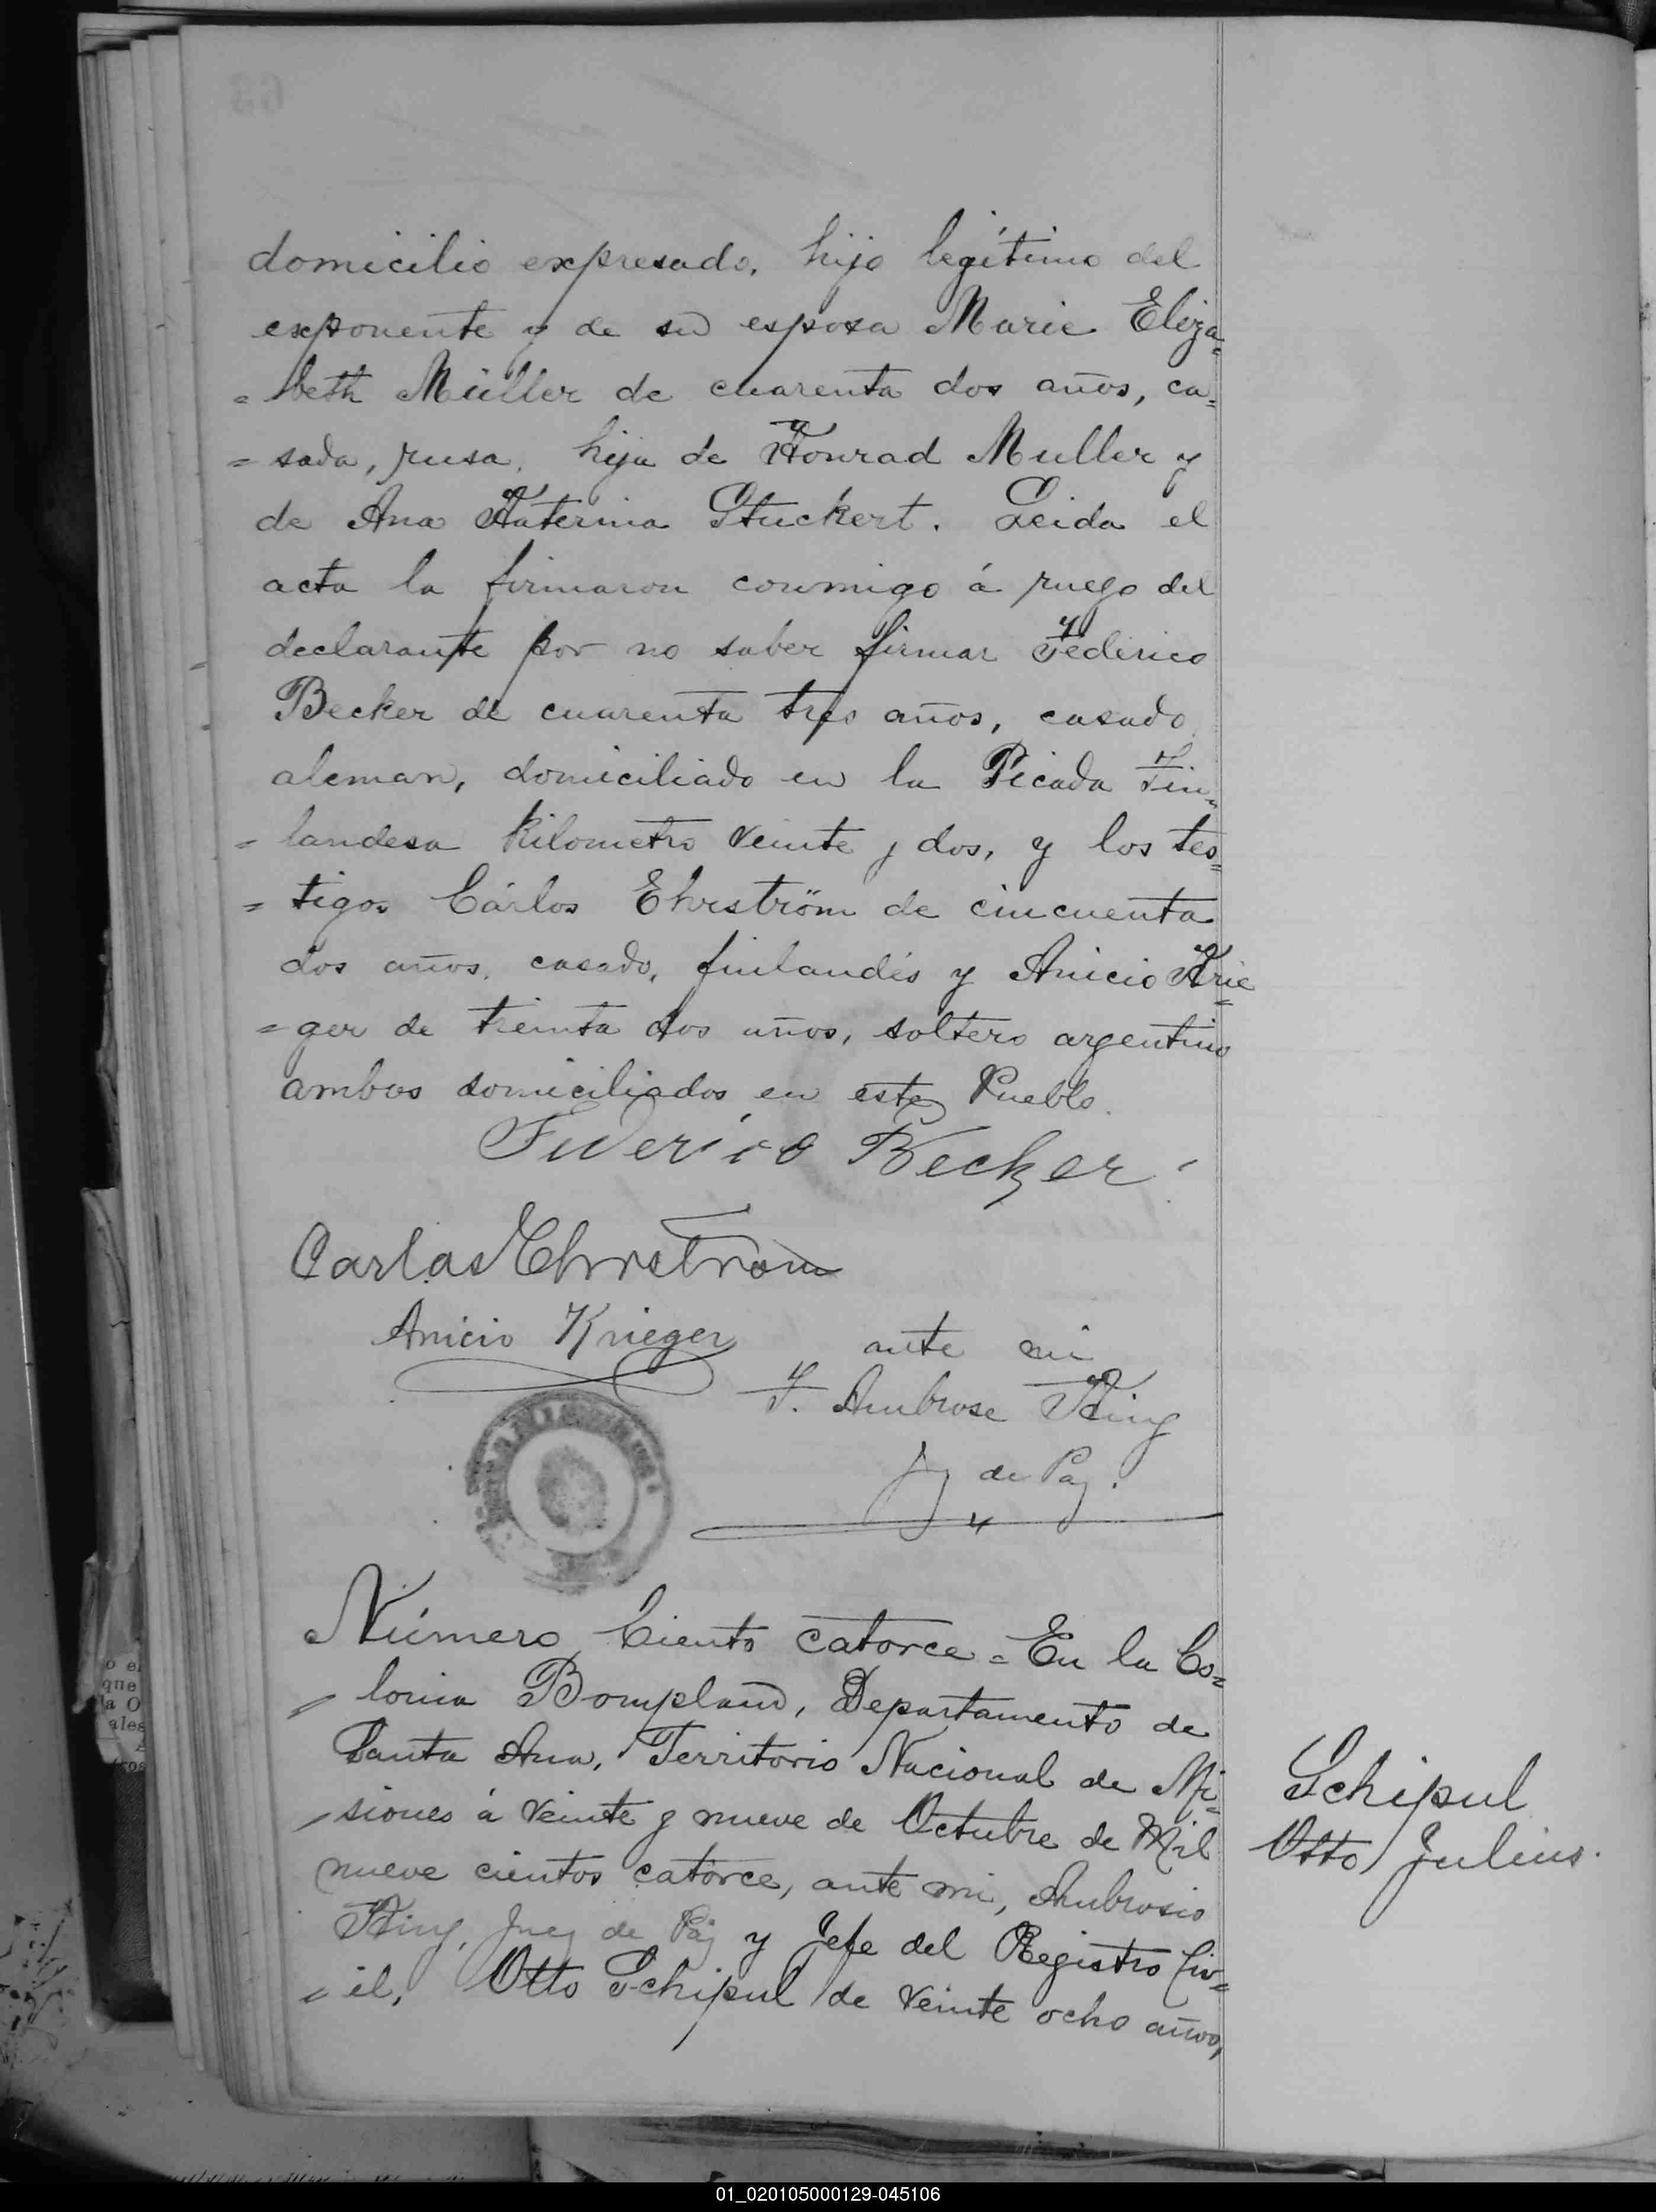 domicilio expresado, hijo legítimo del
exponente y de su esposa Marie Eliza=
=beth Müller de cuarenta dos años, ca=
=sada, rusa, hija de Konrad Muller y
de Ana Katerina Stuckert. Leida el
acta la firmaron conmigo á ruego del
declarante por no saber firmar Federico
Becker de cuarenta tres años, casado,
aleman, domiciliado en la Picada Fin=
=landesa Kilometro veinte y dos, y los tes=
=tigos Cárlos Ehrström de cincuenta
dos años, casado, finlandés y Anicio Krie=
=ger de treinta dos años, soltero argentino
ambos domiciliados en este Pueblo.
Federico Becker
Carlos Ehrström
Anicio Krieger
ante mi
F. Ambrose King
J de Paz.
Número Ciento catorce = En la Co=
=lonia Bompland, Departamento de
Santa Ana, Territorio Nacional de Mi=
=siones á veinte y nueve de Octubre de Mil
nueve cientos catorce, ante mi, Ambrosio
King, Juez de Paz y Jefe del Registro Civ=
=il, Otto Schipul de veinte ocho años,
Schipul
Otto Julius.
01_020105000129-045106